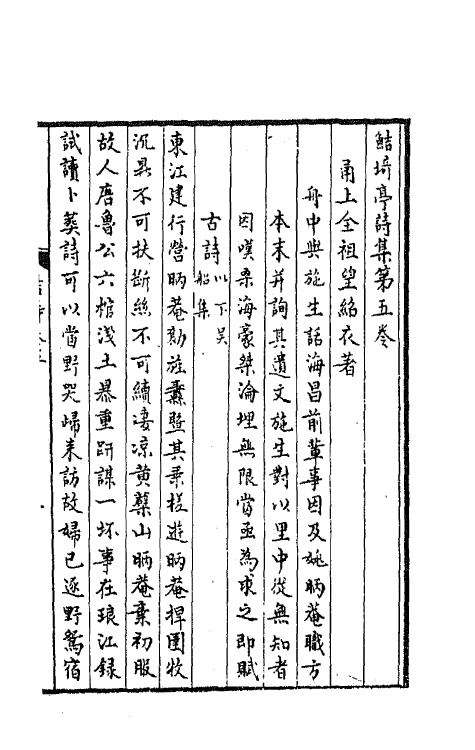 鮚埼亭詩集第五卷
甬上全祖望紹衣著
舟中與施生話海昌前輩事因及姚眪菴職方
本末并詢其遺文施生對以里中從無知者
因嘆桑海豪桀淪埋無限當亟為求之即賦
古詩以下吴船集
東江建行營眪菴勷旌纛暨其乗桴遊眪菴捍圉牧
沉鼎不可扶斷絲不可續淒凉黄蘗山眪菴棄初服
故人唐魯公六棺淺土暴重趼謀一抔事在琅江録
試讀卜葬詩可以當野哭歸来訪故婦已逐野鴛宿